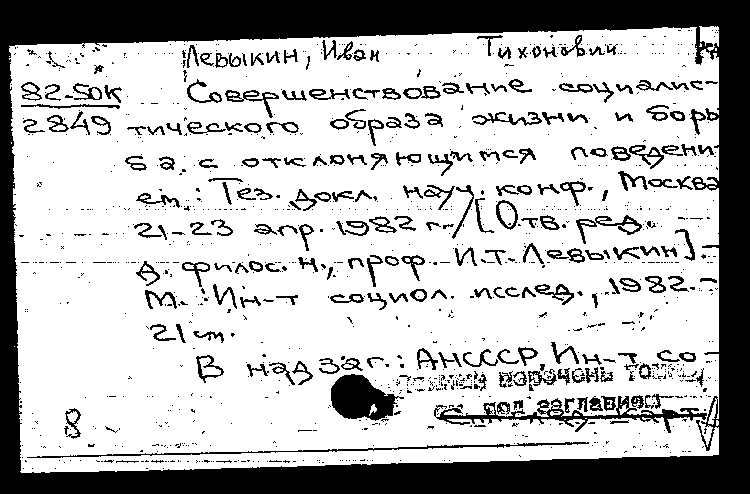 Левыкин, Иван Тихонович ред
82-50К Совершенствование социалис-
2849 тического образа жизни и борь
ба с отклоняющимся поведени
ем: Тез. докл. науч. конф., Москва
21-23 апр. 1982 г. / [Отв. ред.
д. филос. н., проф. И.Т. Левыкин]. -
М.: Ин-т социол. исслед., 1982. -
21 см.
В надзаг.: АНСССР, Ин-т со-
перечень
под заглавием
8